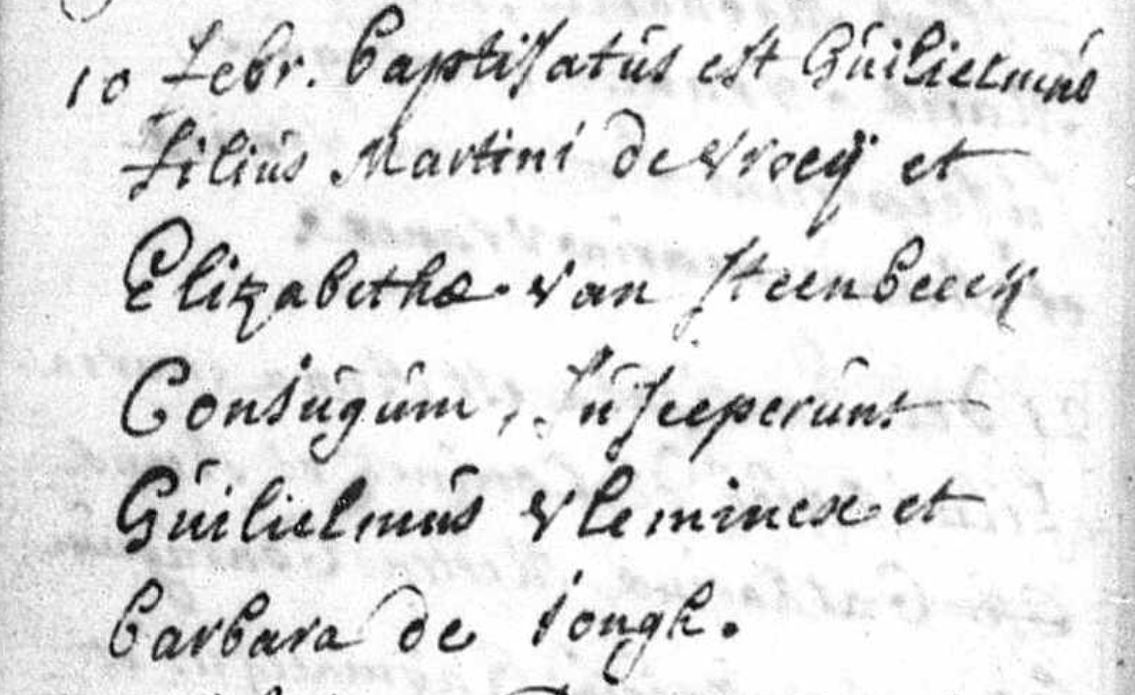 10 Febr. baptisatus est Guilielmus
filius Martini de Vroeÿ et
Elizabethæ van steenbeeck
Conjugum, susceperunt
Guilielmus Vlemincx et
barbara de jongh.